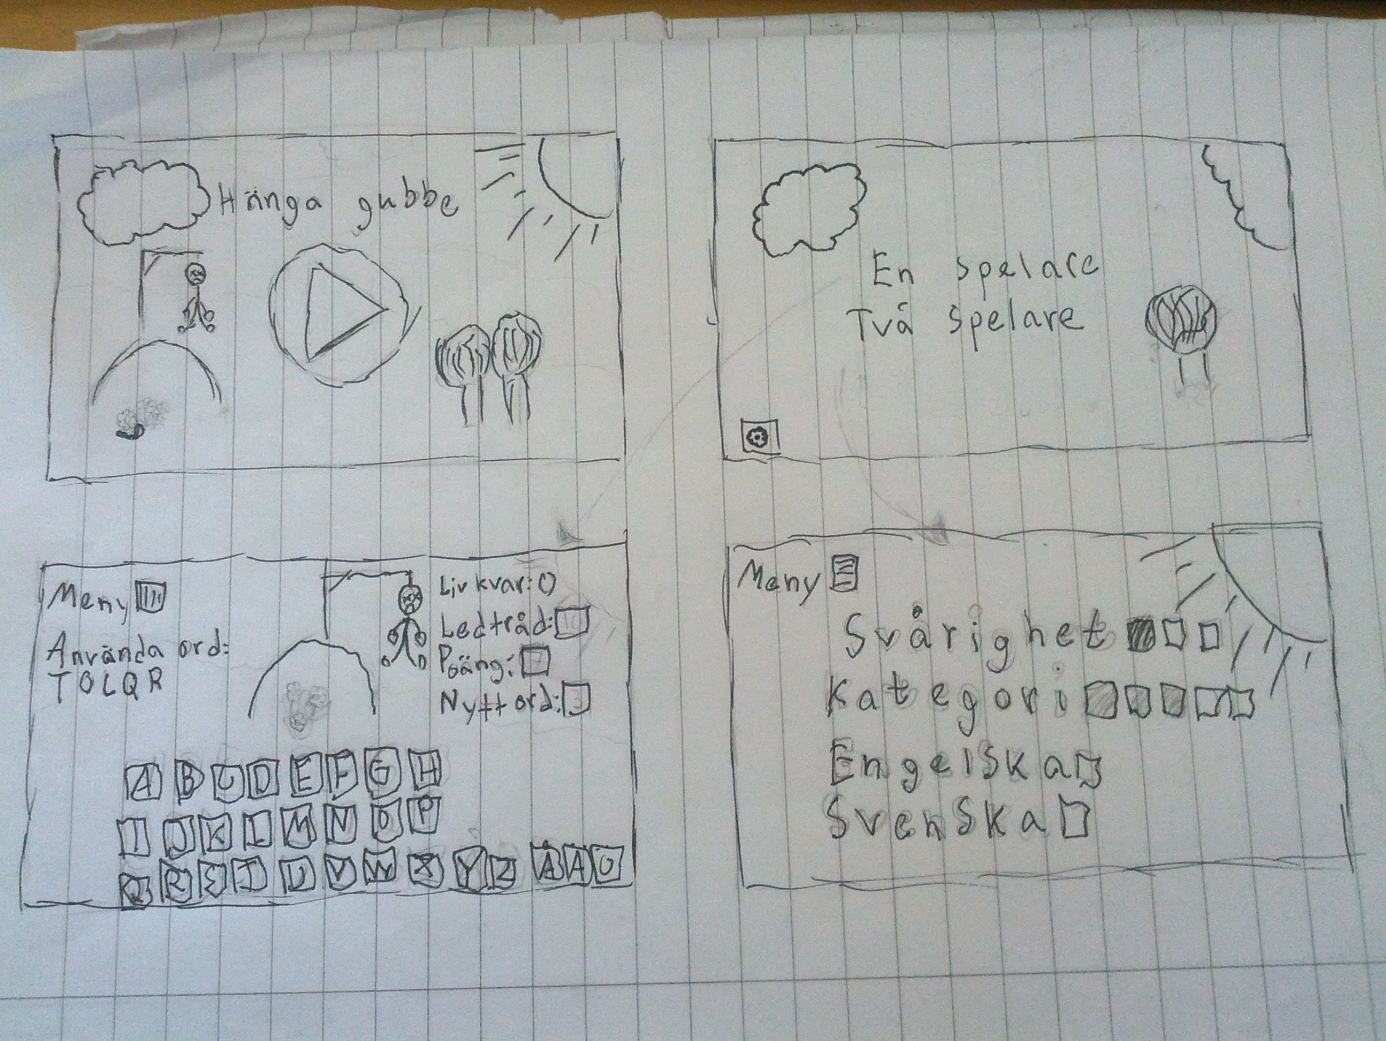 Hänga gubbe
En spelare
Två spelare
Meny
Använda ord:
TOLQR
Liv kvar: 0
Ledtråd:
Poäng:
Nytt ord:
A B C D E F G H
I J K L M N O P
Q R S T U V W X Y Z Å Ä Ö
Meny
Svårighet
Kategori
Engelska
Svenska